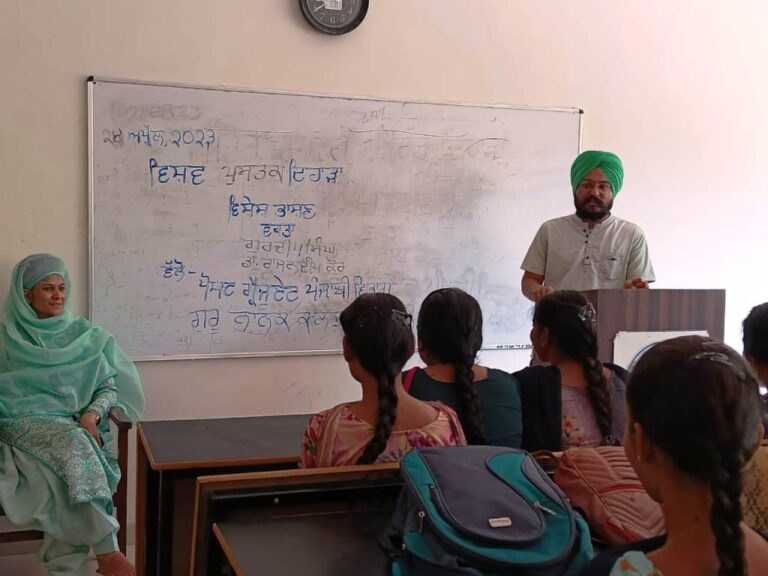 ੨੪ ਅਪ੍ਰੈਲ, ੨੦੨੩
ਵਿਸ਼ਵ ਪੁਸਤਕ ਦਿਹਾੜਾ
ਵਿਸ਼ੇਸ਼ ਭਾਸ਼ਣ
ਵਕਤਾ
ਗੁਰਦੀਪ ਸਿੰਘ
ਡਾ. ਰਾਜਨਦੀਪ ਕੌਰ
ਵੱਲੋਂ - ਪੋਸਟ ਗ੍ਰੈਜੂਏਟ ਪੰਜਾਬੀ ਵਿਭਾਗ
ਗੁਰੂ ਨਾਨਕ